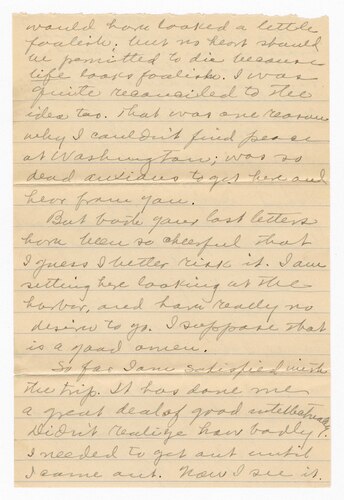 would have looked a little
foolish. But no heart should
be permitted to die because
life looks foolish. I was
quite reconciled to the
idea too. That was one reason
why I couldn't find peace
at Washington; was so
dead anxious to get here and
hear from you.
But both your last letters
have been so cheerful that
I guess I better risk it. I am
sitting here looking at the
harbor, and have really no
desire to go. I suppose that
is a good omen.
So far I am satisfied with
the trip. It has done me
a great deal of good intellectually.
Didn't realize how badly
I needed to get out until
I came out. Now I see it.